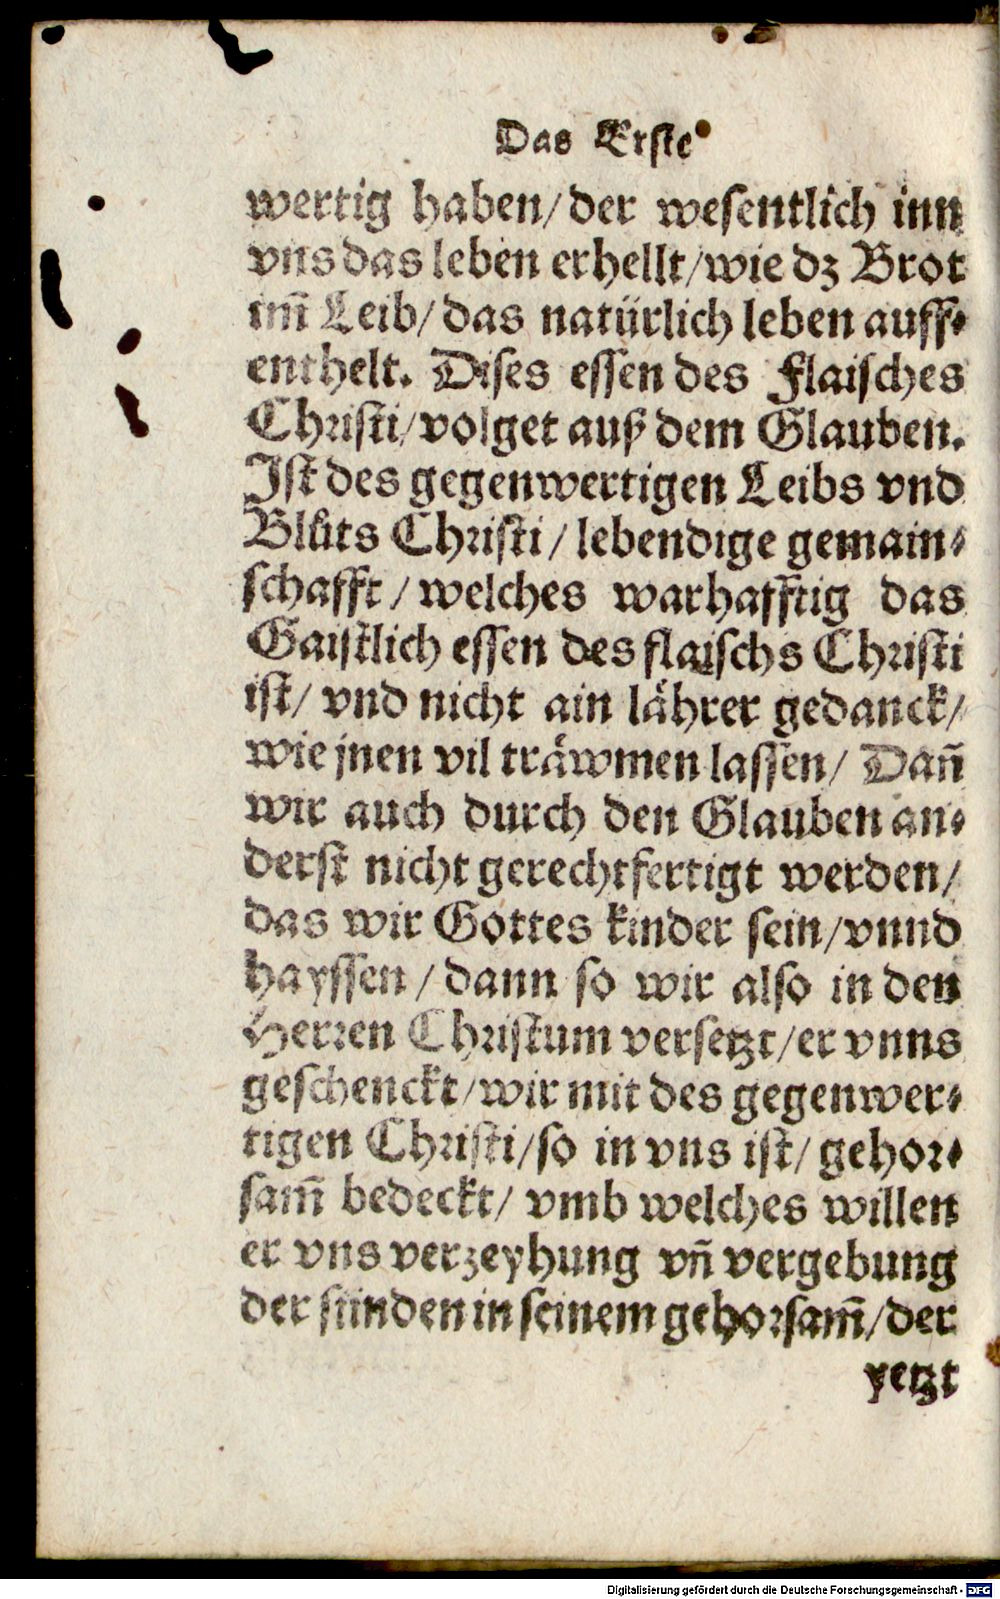 Das Erste
wertig haben/ der wesentlich inn
vns das leben erhellt/ wie dz Brot
im̃ Leib/ das natürlich leben auff⸗
enthelt. Dises essen des Flaisches
Christi/ volget auß dem Glauben.
Ist des gegenwertigen Leibs vnd
Blůts Christi/ lebendige gemain⸗
schafft/ welches warhafftig das
Gaistlich essen des flaischs Christi
ist/ vnd nicht ain lährer gedanck/
wie jnen vil träwmen lassen/ Dañ
wir auch durch den Glauben an⸗
derst nicht gerechtfertigt werden/
das wir Gottes kinder sein/ vnnd
hayssen/ dann so wir also in den
Herren Christum versetzt/ er vnns
geschenckt/ wir mit des gegenwer⸗
tigen Christi/ so in vns ist/ gehor⸗
sam̃ bedeckt/ vmb welches willen
er vns verzeyhung vñ vergebung
der sünden in seinem gehorsam̃/ der
yetzt
Digitalisierung gefördert durch die Deutsche Forschungsgemeinschaft - DFG